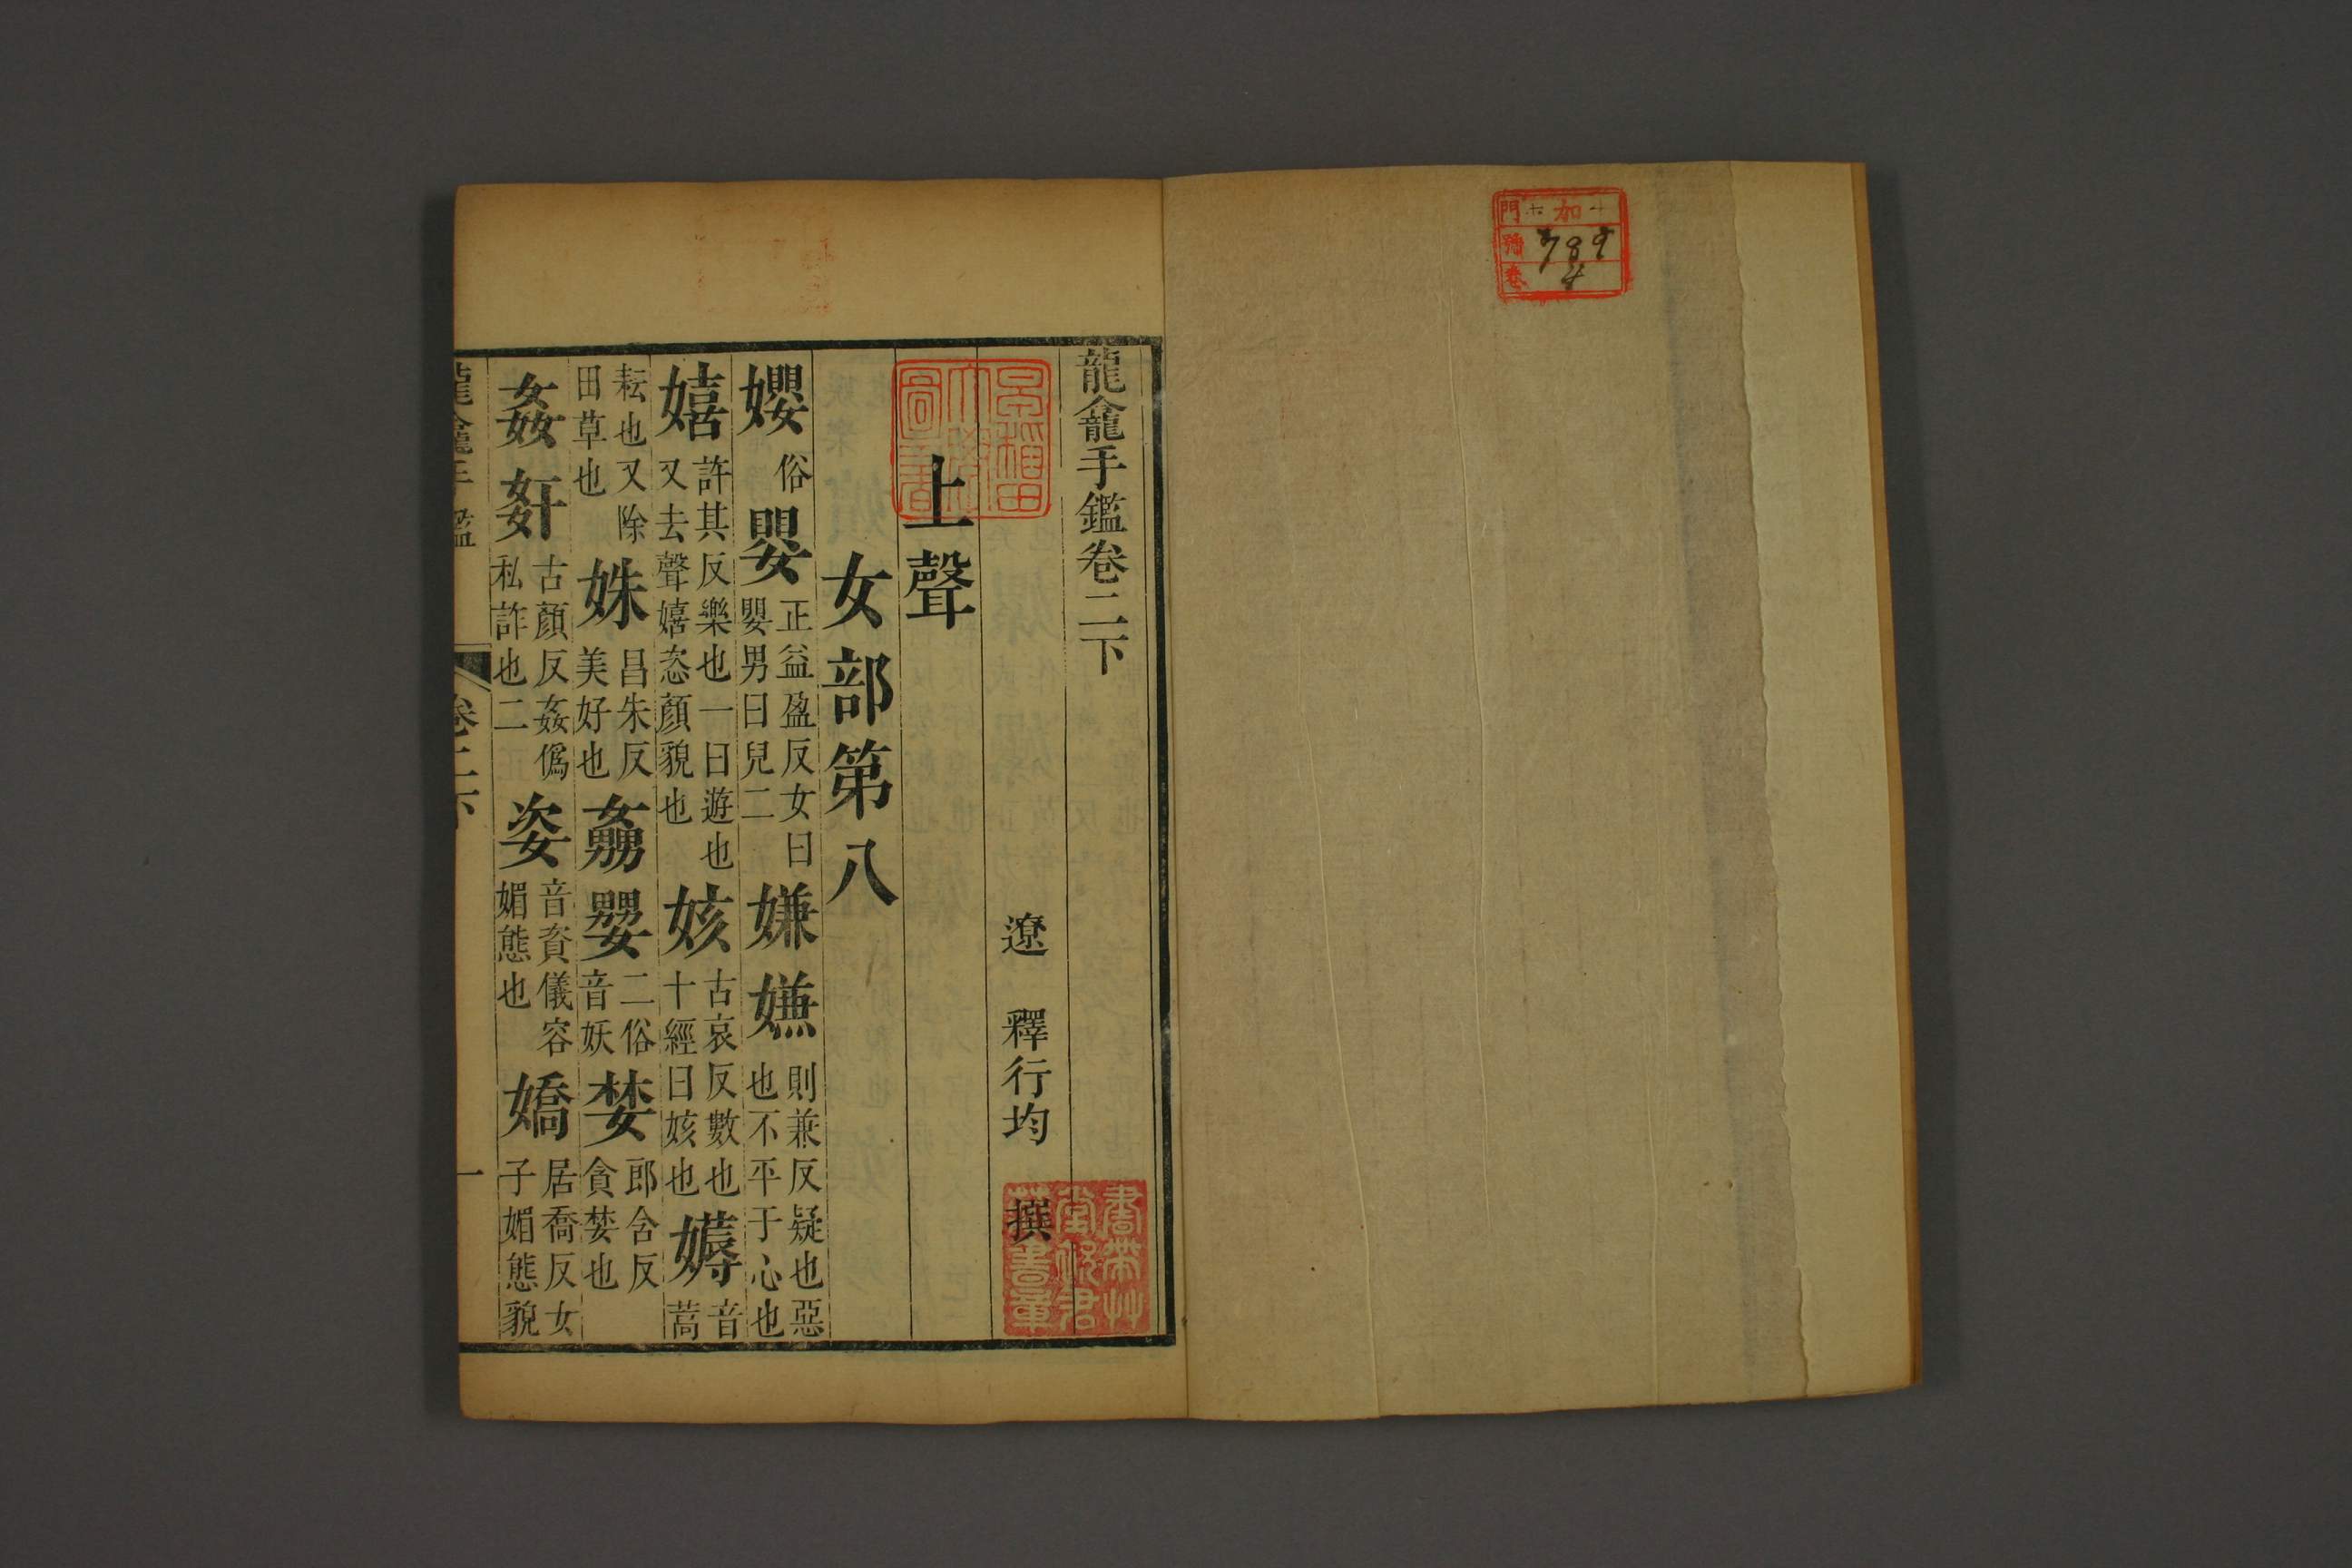 門 加
號 789
卷 4
龍龕手鑑卷二下
遼 釋行均 撰
早稲田大學圖書
書帶艸堂
書章
上聲
女部第八
㜲俗嬰正益盈反女曰嬰男曰兒二嫌嬚則兼反疑也惡也不平于心也
嬉許其反樂也一曰遊也又去聲嬉恣顏貌也姟古哀反數也十經曰姟也媷音蒿
耘也又除田草也姝昌朱反美好也二俗音妖婪郎含反貪婪也
姦奸古顏反姦僞私詐也二姿音資儀容媚態也嬌居喬反女子媚態貌
龍龕手鑑 卷二下 一